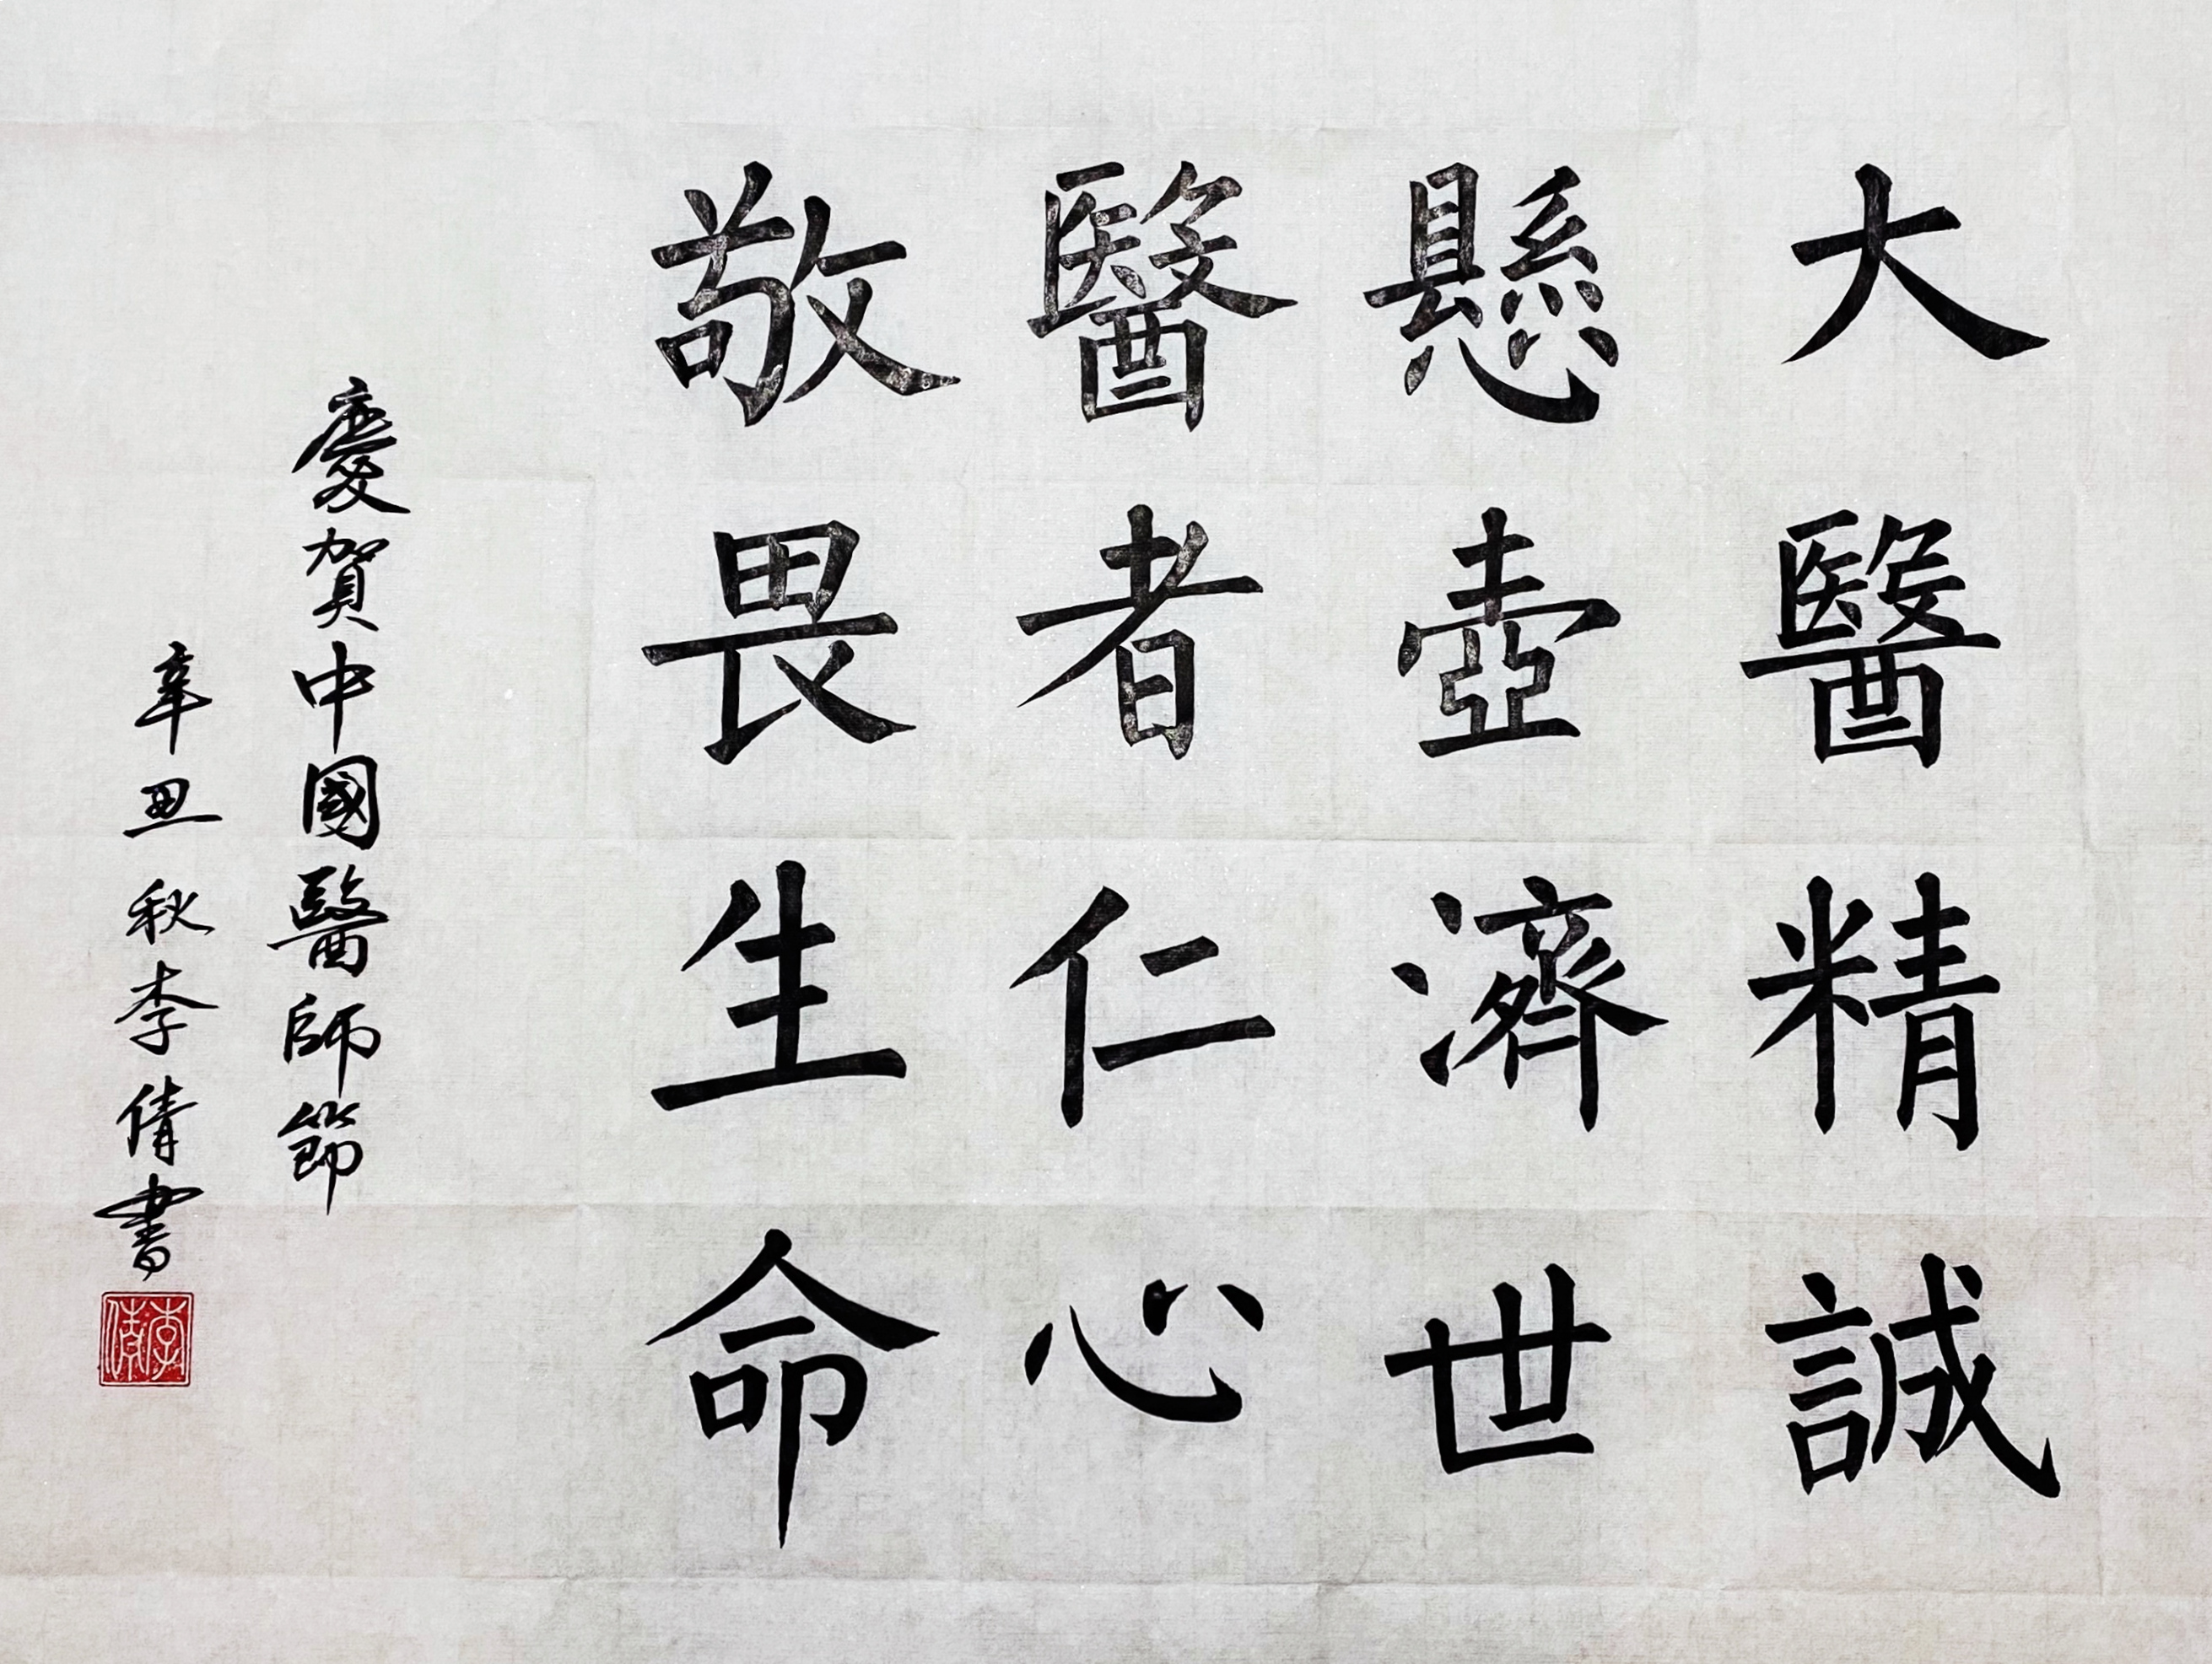 大醫精誠
懸壺濟世
醫者仁心
敬畏生命
慶賀中國醫師節
辛丑秋李倩書
李倩